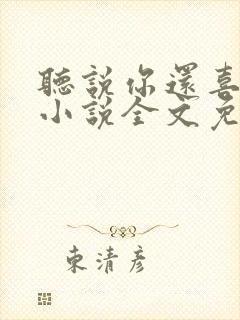 聽說你還喜
小說全文免
東清彥